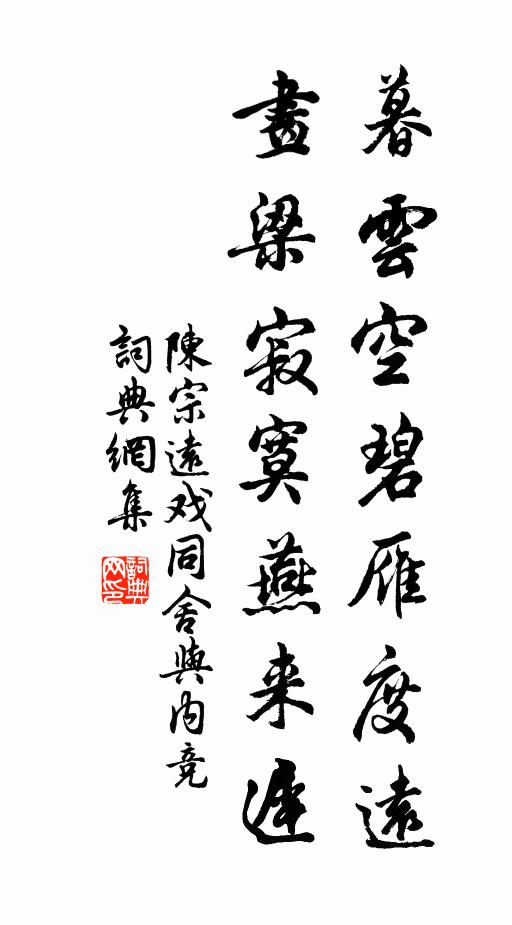 暮雲空碧雁度遠
畫梁寂寞燕来遲
陳宗遠戏同舍與内竞
詞典網集
詞典
网印